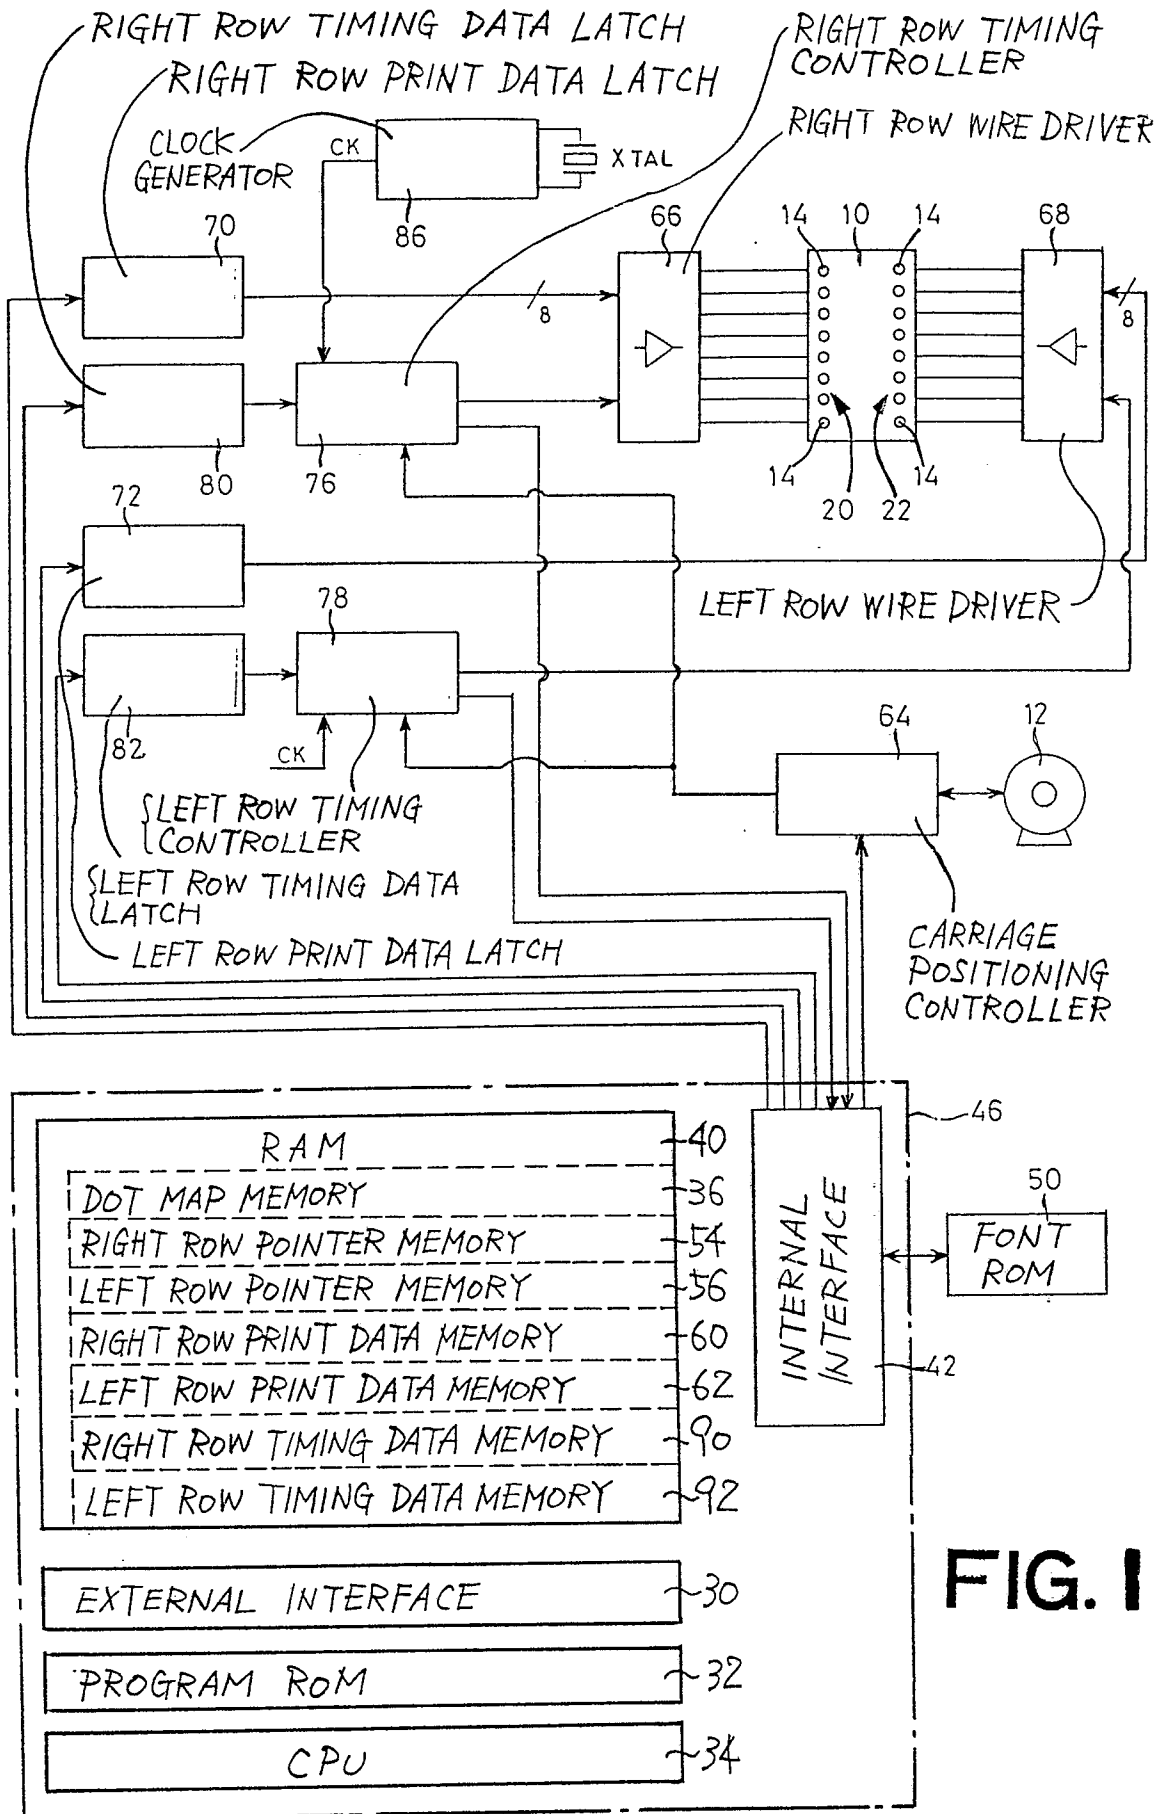 RIGHT ROW TIMING DATA LATCH
RIGHT ROW PRINT DATA LATCH
RIGHT ROW TIMING
CONTROLLER
RIGHT ROW WIRE DRIVER
CLOCK
GENERATOR
CK
XTAL
86
70
66
14
10
14
68
8
8
80
76
14
14
20
22
72
78
LEFT ROW WIRE DRIVER
82
CK
64
12
LEFT ROW TIMING
CONTROLLER
LEFT ROW TIMING DATA
LATCH
LEFT ROW PRINT DATA LATCH
CARRIAGE
POSITIONING
CONTROLLER
46
RAM
40
DOT MAP MEMORY
36
RIGHT ROW POINTER MEMORY
54
LEFT ROW POINTER MEMORY
56
RIGHT ROW PRINT DATA MEMORY
60
LEFT ROW PRINT DATA MEMORY
62
RIGHT ROW TIMING DATA MEMORY
90
LEFT ROW TIMING DATA MEMORY
92
INTERNAL
INTERFACE
42
50
FONT
ROM
EXTERNAL INTERFACE
30
PROGRAM ROM
32
CPU
34
FIG. 1